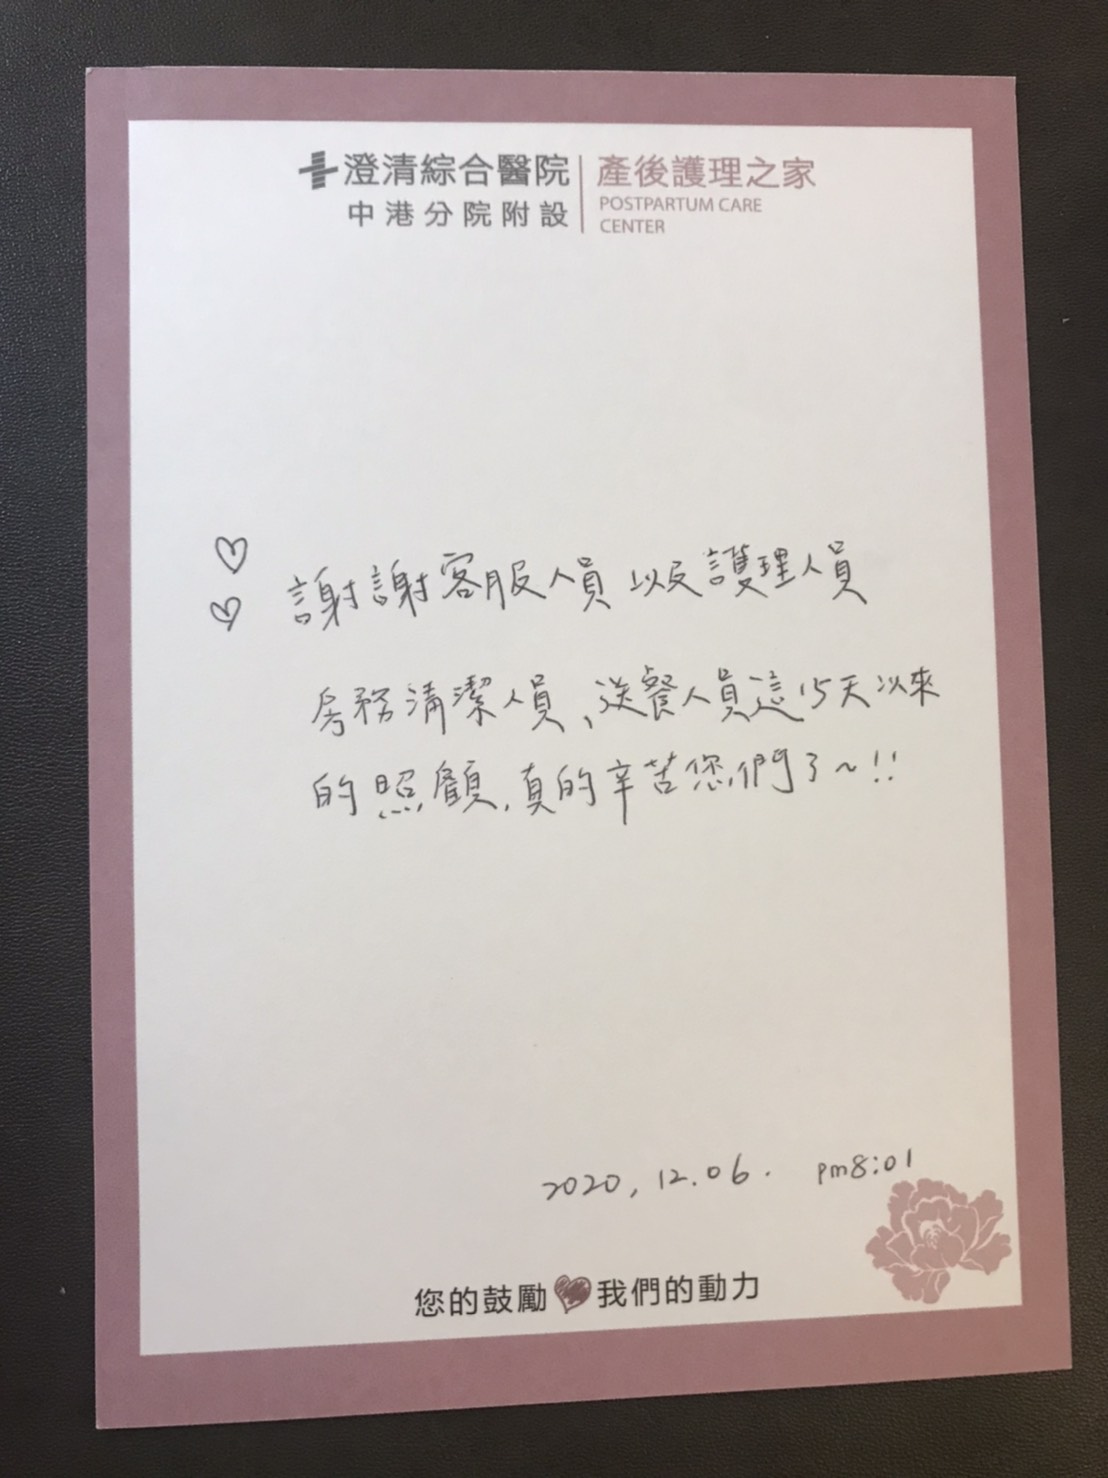 澄清綜合醫院
中港分院附設
產後護理之家
POSTPARTUM CARE
CENTER
謝謝客服人員以及護理人員
房務清潔人員、送餐人員這15天以來
的照顧,真的辛苦您們了~!!
2020,12.06. pm8:01
您的鼓勵 我們的動力